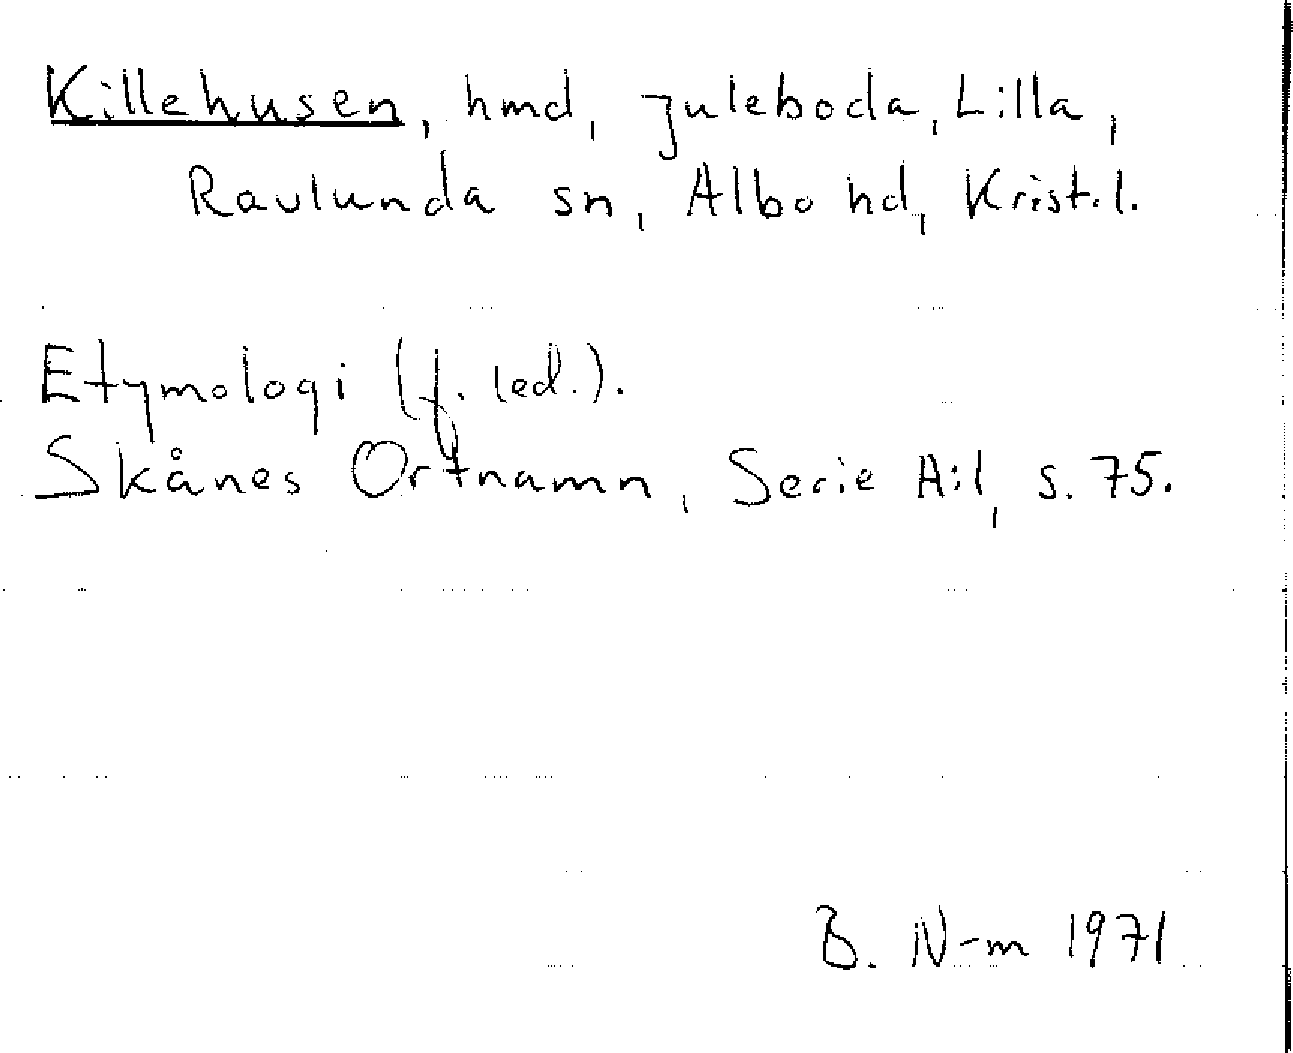 Killehusen, hmd, Juleboda, Lilla,
Ravlunda sn, Albo hd, Krist.l.
Etymologi (f. led.).
Skånes Ortnamn, Serie A:1, s. 75.
B. N-m 1971